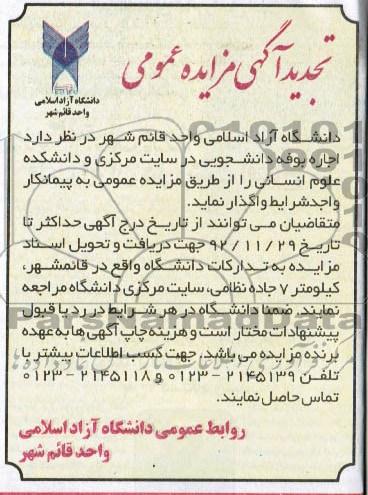 تجدید آگهی مزایده عمومی
دانشگاه آزاد اسلامی
واحد قائم شهر
دانشگاه آزاد اسلامی واحد قائم شهر در نظر دارد
اجاره بوفه دانشجویی در سایت مرکزی و دانشکده
علوم انسانی را از طریق مزایده عمومی به پیمانکار
واجد شرایط واگذار نماید.
متقاضیان می توانند از تاریخ درج آگهی حداکثر تا
تاریخ ۹۲/۱۱/۲۹ جهت دریافت و تحویل اسناد
مزایده به تدارکات دانشگاه واقع در قائمشهر،
کیلومتر ۷ جاده نظامی، سایت مرکزی دانشگاه مراجعه
نمایند. ضمنا دانشگاه در هر شرایط در رد یا قبول
پیشنهادات مختار است و هزینه چاپ آگهی ها به عهده
برنده مزایده می باشد. جهت کسب اطلاعات بیشتر با
تلفن ۲۱۴۵۱۳۹ – ۰۱۲۳ و ۲۱۴۵۱۱۸ – ۰۱۲۳
تماس حاصل نمایند.
روابط عمومی دانشگاه آزاد اسلامی
واحد قائم شهر